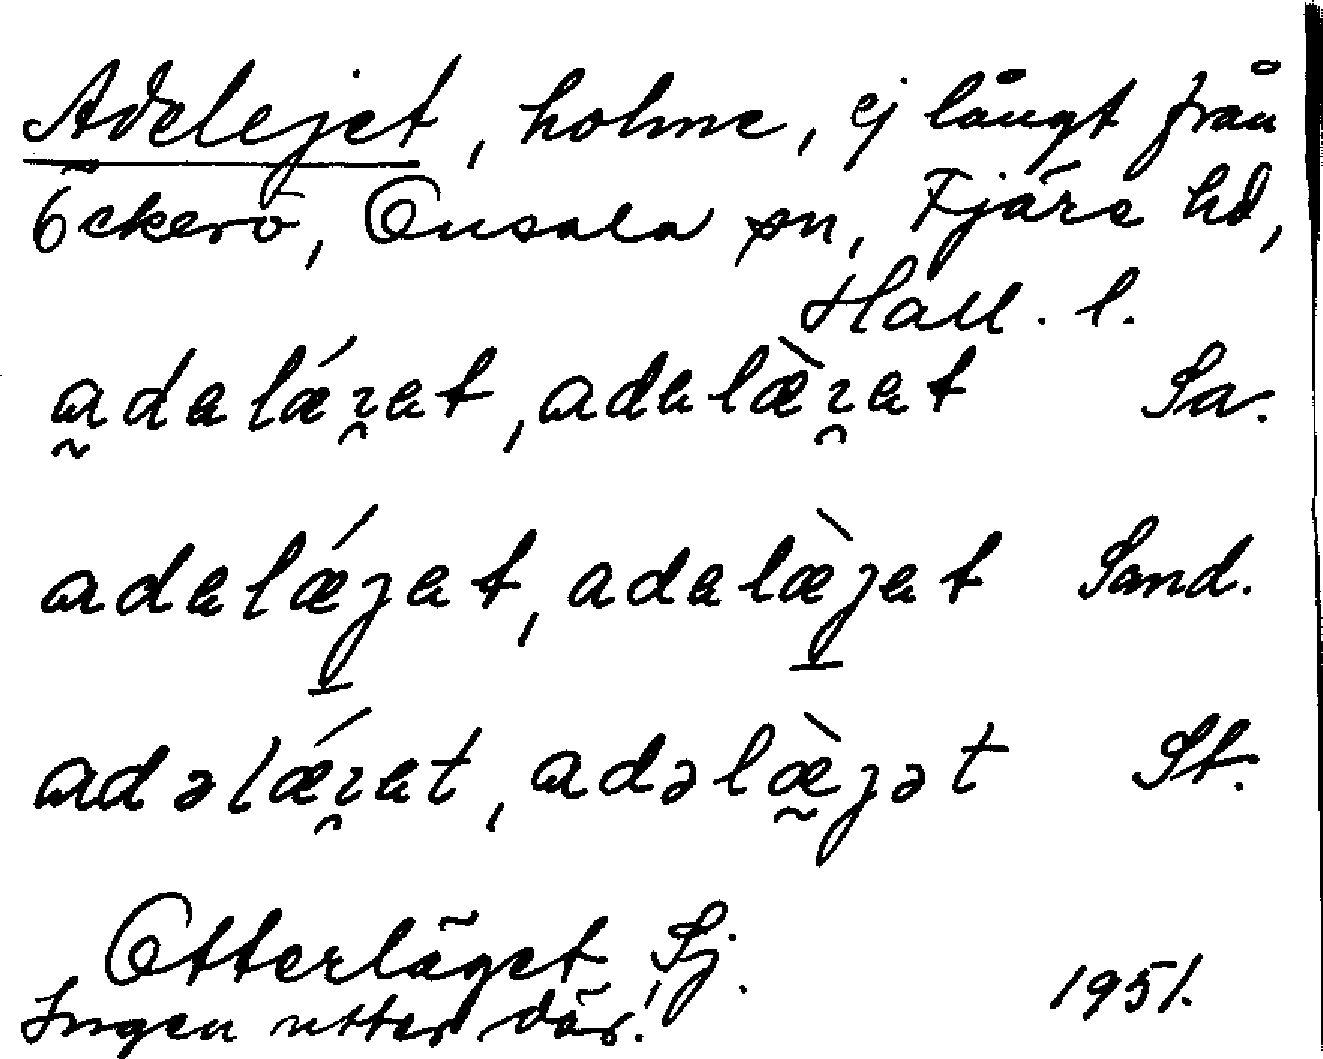 Adelejet, holme, ej långt från
Öckerö, Onsala sn, Fjäre hd,
Hall. l.
adalǽɿat, adalæ̀ɿat Sa.
adalǽȷat, adalæ̀ȷat Sand.
adəlǽɿat, adəlæ̀ȷət St.
Otterläget, Sj.
Ingen utter där! 1951.